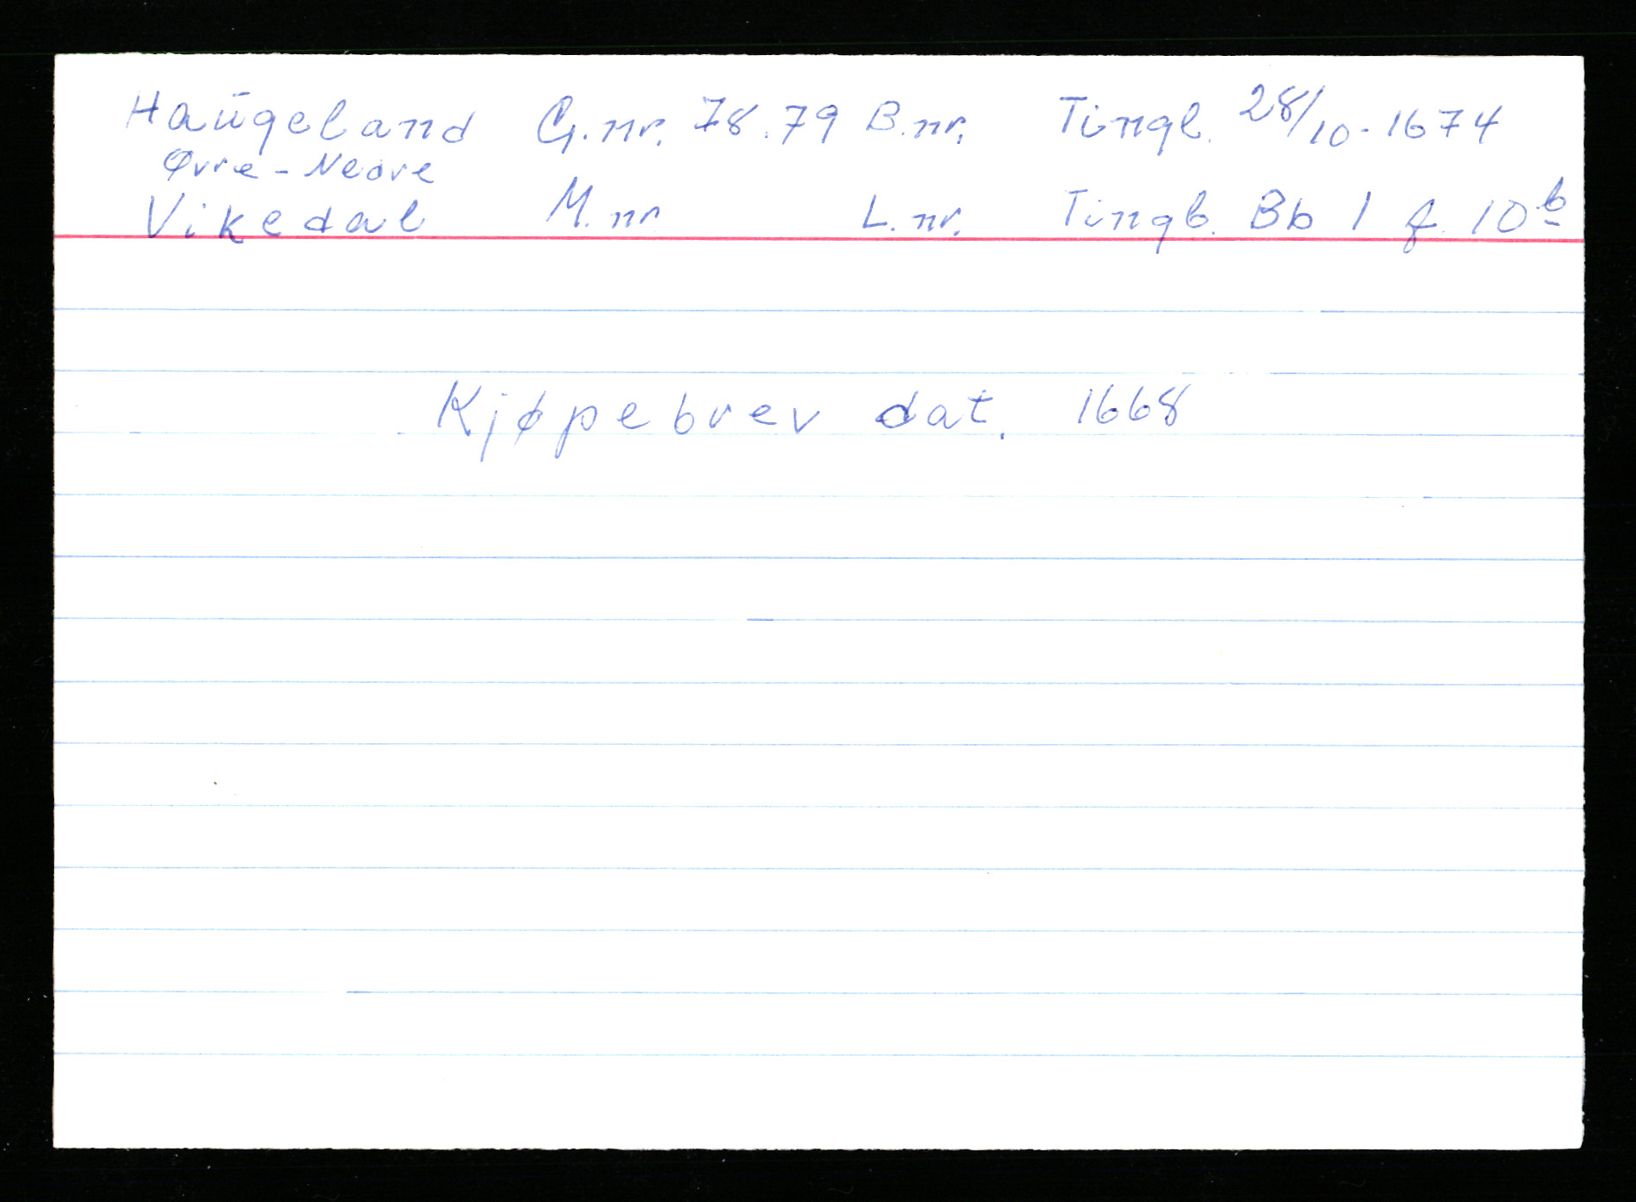 Haugeland G.nr. 78.79 B.nr. Tingl. 28/10-1674
Øvre - Nedre
Vikedal M.nr L.nr. Tingb. Bb 1 f. 10b
Kjøpebrev dat. 1668